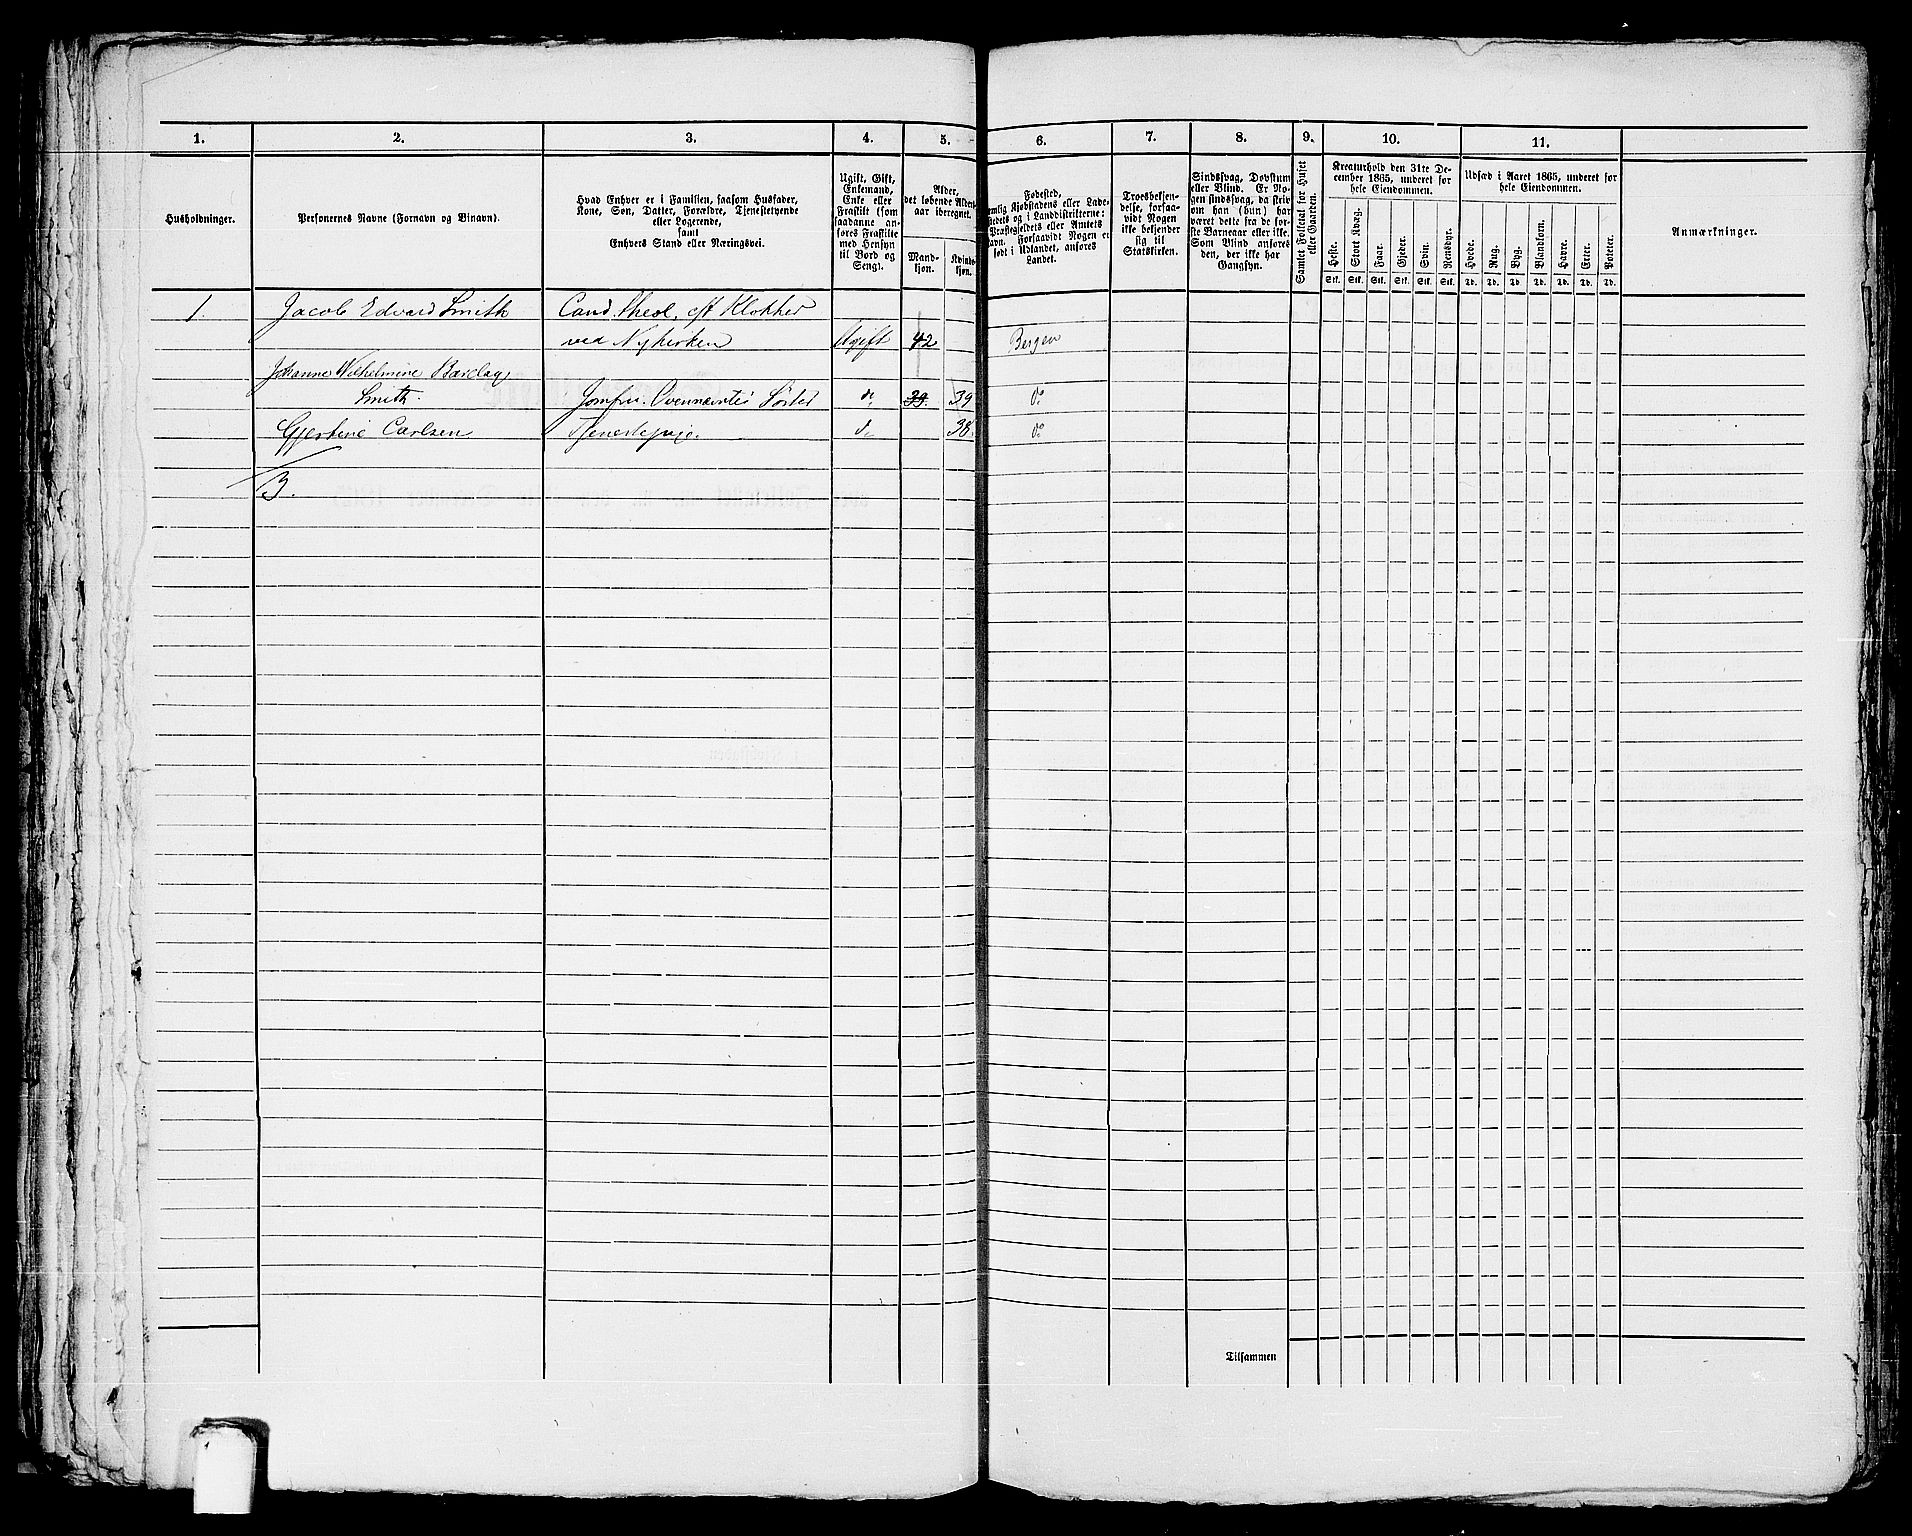 1. 2. 3. 4. 5. 6. 7. 8. 9. 10. 11.
Husholdninger.
Personernes Navne (Fornavn og Binavn).
Hvad Enhver er i Familien, saasom Husfader,
Kone, Søn, Datter, Forældre, Tjenestetyende
eller Logerende,
samt
Enhvers Stand eller Næringsvei.
Ugift, Gift,
Enkemand,
Enke eller
Fraskilt (som
saadanne an-
føres Fraskilte
med Hensyn
til Bord og
Seng).
Alder,
det løbende Alders-
aar iberegnet.
Mand-
kjøn.
Kvinde-
kjøn.
Fødested,
nemlig Kjøbstadens eller Lade-
stedets og i Landdistrikterne:
Præstegjeldets eller Amtets
Navn. Forsaavidt Nogen er
født i Udlandet, anføres
Landet.
Troesbekjen-
delse, forsaa-
vidt Nogen
ikke bekjender
sig til
Statskirken.
Sindssvag, Døvstum
eller Blind. Er No-
gen sindssvag, da skriv
om han (hun) har
været dette fra de før-
ste Barneaar eller ikke.
Som Blind anføres
den, der ikke har
Gangsyn.
Samlet Folketal for Huset
eller Gaarden.
Kreaturhold den 31te De-
cember 1865, underet for
hele Eiendommen.
Heste. Stort Kvæg. Faar. Gjeder. Svin. Rensdyr.
Stk. Stk. Stk. Stk. Stk. Stk.
Udsæd i Aaret 1865, underet for
hele Eiendommen.
Hvede. Rug. Byg. Blandkorn. Havre. Erter. Poteter.
Td. Td. Td. Td. Td. Td. Td.
Anmærkninger.
1. Jacob Edvard Smith Cand. theol. cft Klokker
ved Nykirken Ugift 42 Bergen
Johanne Wilhelmine Barclay
Smith. Jomfru. Ovennævntes Søster do 39. 39 do
Gjertine Carlsen Tjenestepige. do 38. do
3.
Tilsammen